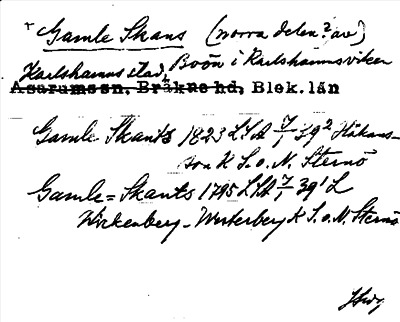 + Gamle Skans (norra delen? av)
Karlshamns stad, Boön i Karlshamnsviken
Asarums sn, Bräkne hd, Blek. län
Gamle Skants 1823 LSA 7/1 39² Håkans-
son K S.o.N. Sternö
Gamle=Skants 1795 LSA 7/1 39¹ L
Wickenberg - Westerberg K S.o.N. Sternö